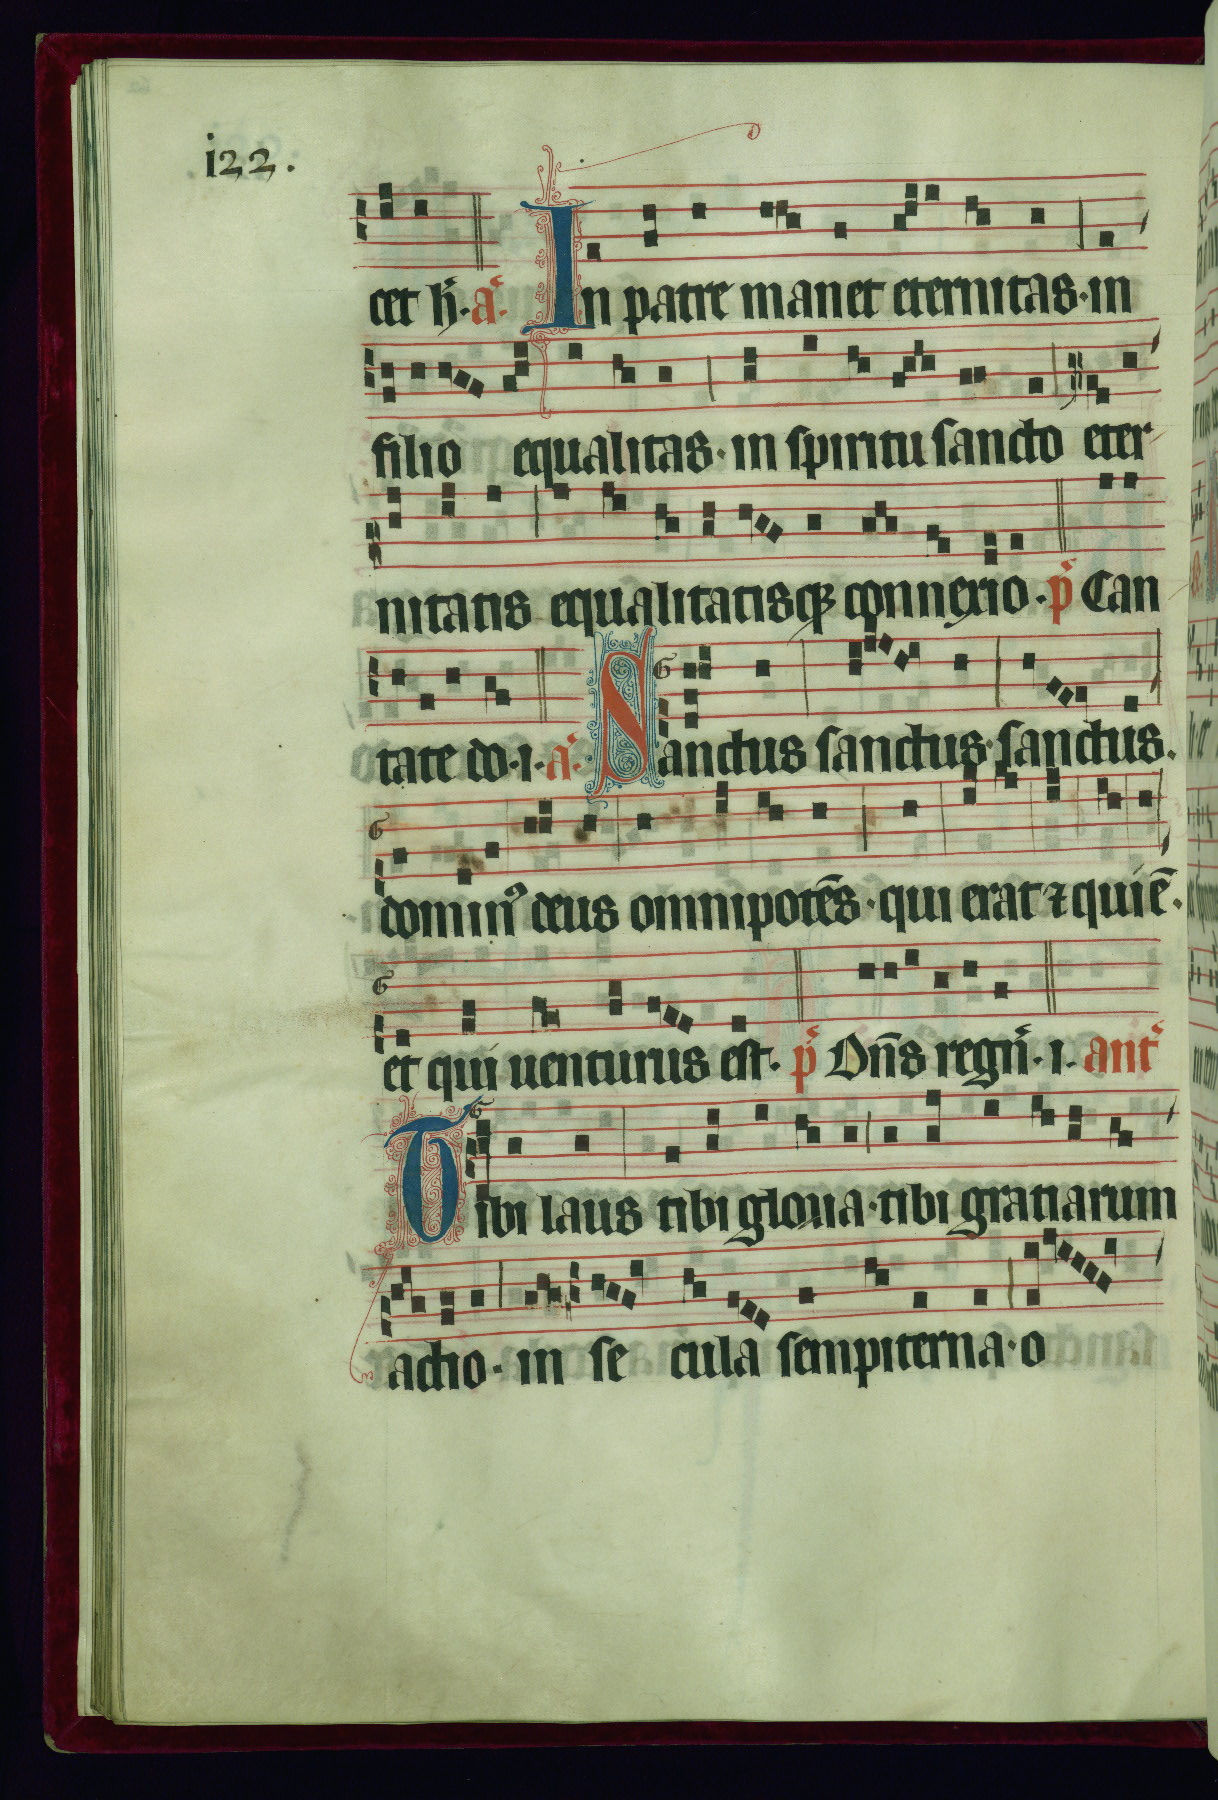 i22.
cet h̄. a. In patre manet eternitas. in
filio equalitas. in spiritu sancto eter
nitatis equalitatisqꝫ connexio. p̄ Can
tate do. i. a. Sanctus sanctus. sanctus.
dominꝰ deus omnipotēs. qui erat ⁊ qui ē.
et qui uenturus est. p̄ Dn̄s regn̄. i. ant
Tibi laus tibi gloria. tibi gratiarum
actio. in se cula sempiterna. o